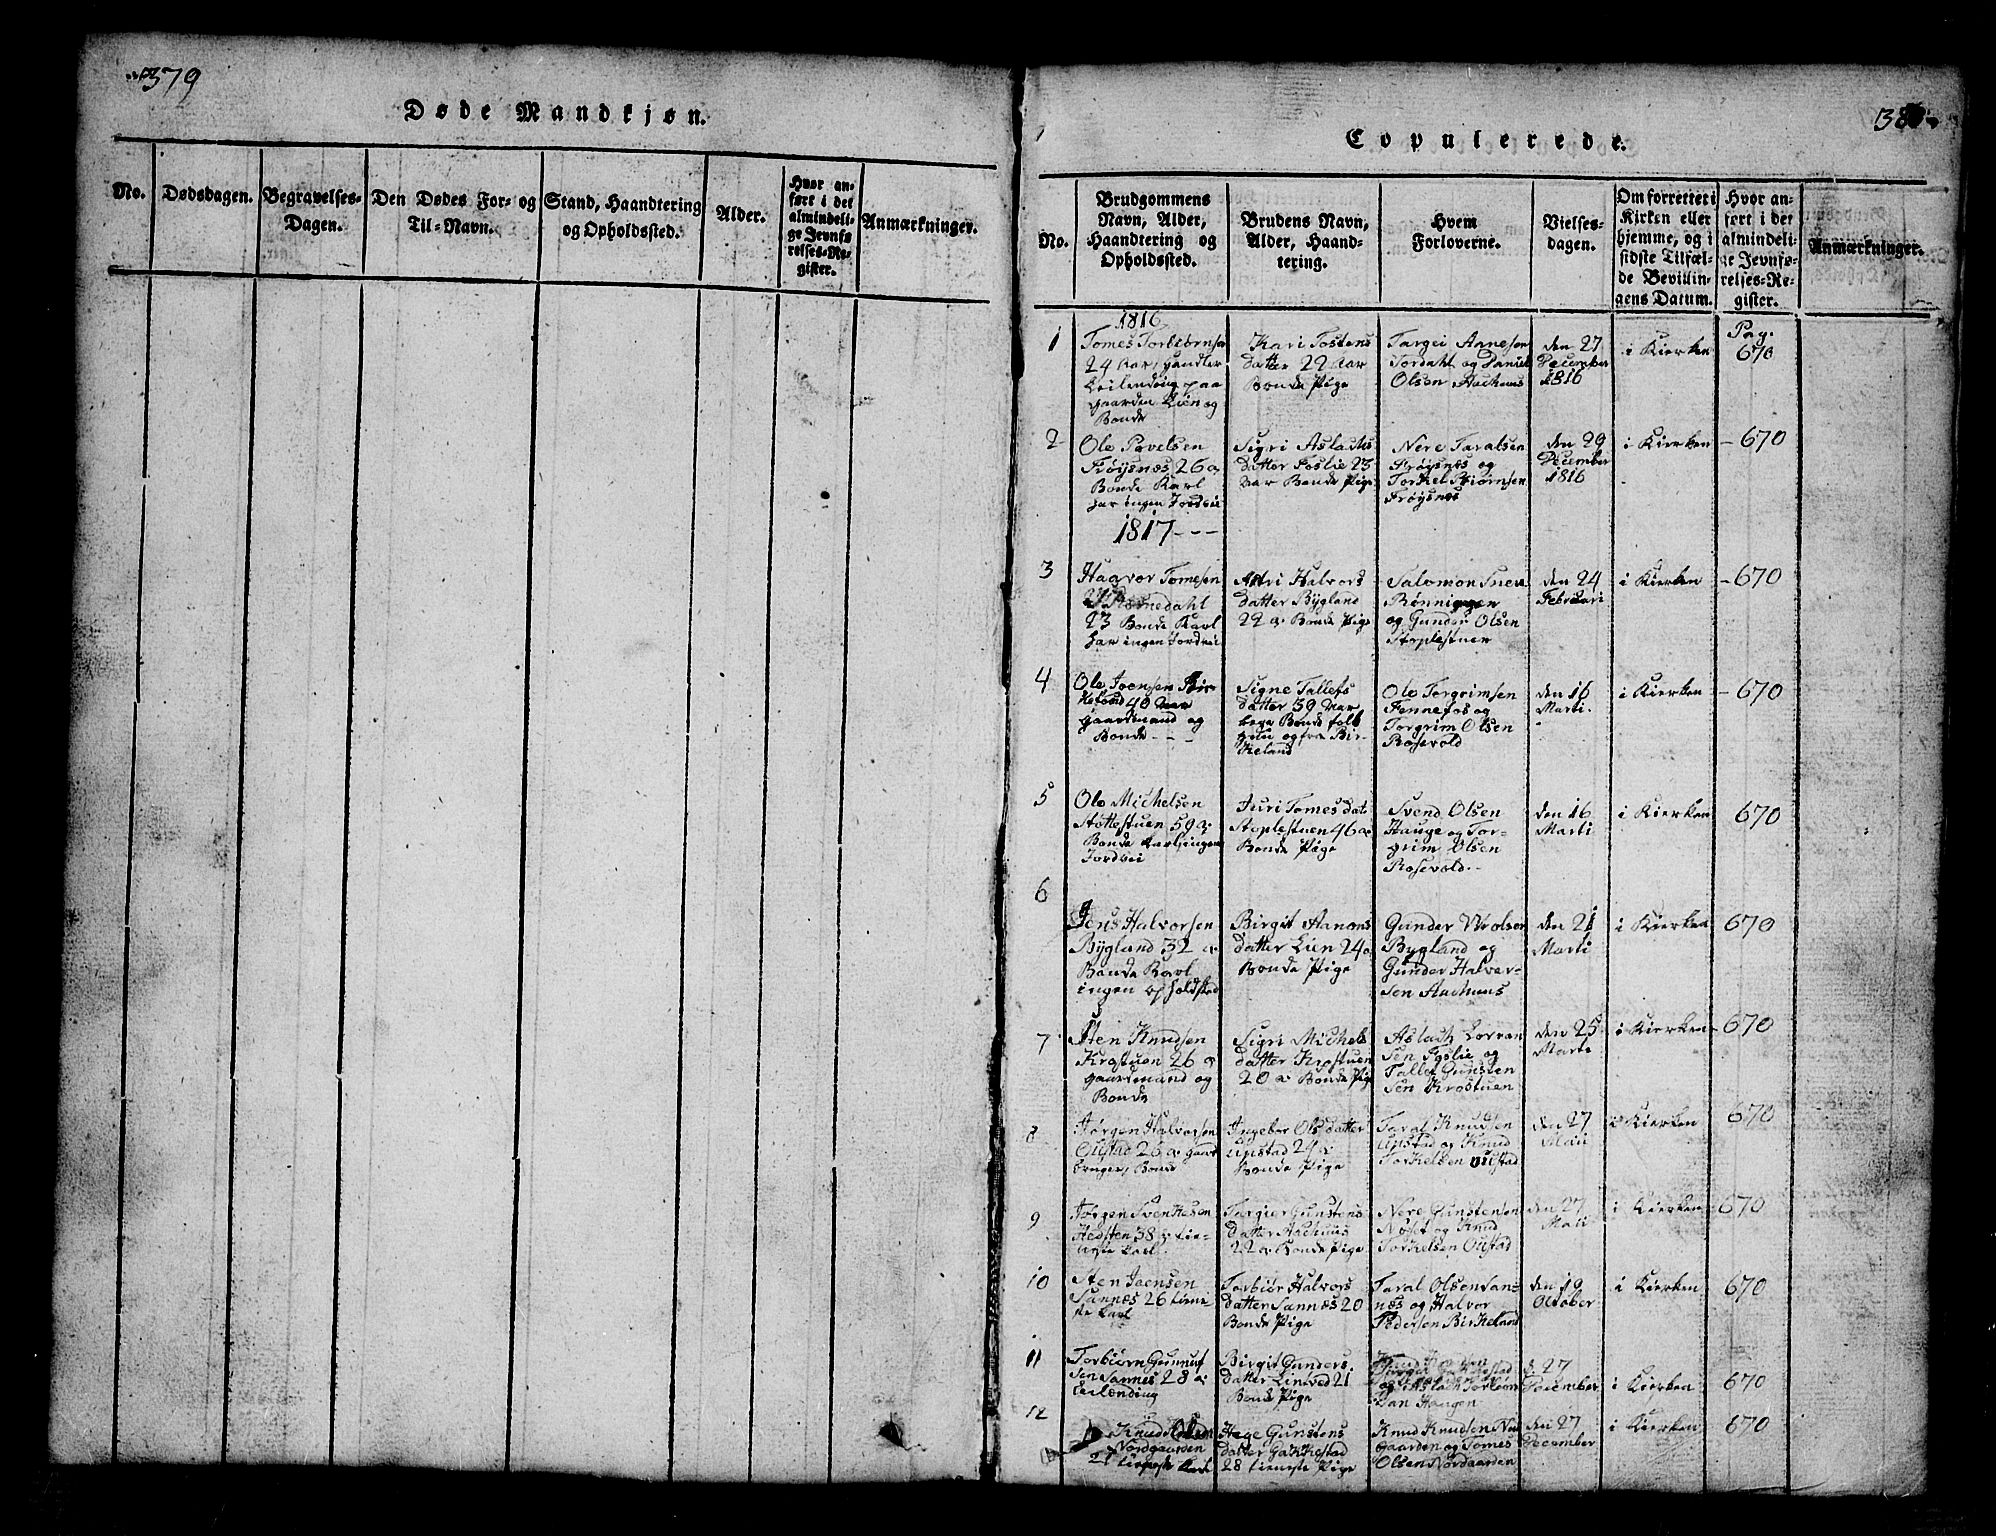 379
Døde Mandkjøn.
No.
Dødsdagen.
Begravelses-
Dagen.
Den Dødes For- og
Til-Navn.
Stand, Haandtering
og Opholdssted.
Alder.
Hvor an-
ført i det
almindeli-
ge Jevnfø-
relses-Re-
gister.
Anmærkninger.
Copulerede.
No.
Brudgommens
Navn, Alder,
Haandtering og
Opholdssted.
Brudens Navn,
Alder, Haand-
tering.
Hvem
Forloverne.
Vielses-
dagen.
Om forrettet i
Kirken eller
hjemme, og i
sidste Tilfæl-
de Bevillin-
gens Datum.
Hvor an-
ført i det
almindeli-
ge Jevnfø-
relses-Re-
gister.
Anmærkninger.
1816
1
Tomes Torbiørnsen
24 Aar, Handler
Leilending paa
gaarden Lien og
Bonde
Kari Tostens
datter 22 Aar
Bonde Pige
Targei Annesen
Jordahl og Daniel
Olsen Aachuus
den 27
December
1816
i Kierken
Pag.
670
2
Ole Povelsen
Frøysnæs 26 a
Bonde Karl
har ingen Jordvei
Sigri Aslachs
datter Foslie 23
Aar Bonde Pige
Nere Taralsen
Frøysnæs og
Torkel Biørnsen
Frøysnæs
den 29
December
1816
i Kierken
- 670
1817 - - -
3
Haavor Tomesen
23 Bonde Karl
har ingen Jordvei
Astri Halvors
datter Bygland
22 a. Bonde Pige
Salomon
Rønningen
og Gunder Olsen
Stoplestuen
den 24
Februari
i Kierken
- 670
4
Ole Joensen Bir-
Keland 40 Aar
gaardmand og
Bonde - - -
Signe Tallefs
datter 59 Aar
bege Bonde folk
og fra Bir-
Keland
Ole Torgrimsen
Fennefos og
Torgrim Olsen
Rosevold
den 16
Marti.
i Kierken
- 670
5
Ole Michelsen
59 a
Bonde Karl, ingen
Jordvei
Juri Tomes dat
Stoplestuen 46 a.
Bonde Pige
Svend Olsen
Hauge og Tor-
grim Olsen
Rosevold.
den 16
Marti
i Kierken
670
6
Jens Halvorsen
Bygland 32 a.
Bonde Karl
ingen opholdsted
Birgit Aanons
datter Lien 24 a
Bonde Pige
Gunder Wrolsen
Bygland og
Gunder Halver-
sen Aachuus
den 21
Marti
i Kierken
670
7
Sten Knudsen
Krostuen 26 a
gaardmand og
Bonde
Sigri Michels
datter Krostuen
20 a. Bonde Pige
Aslach
sen Foslie og
Tallef Gunsten
sen Krostuen
den 25
Marti
i Kierken
- 670
8
Jørgen Halvorsen
Oustad 26 a. gaard
bruger, Bonde
Ingebor Olsdatter
Upstad 24 a
Bonde Pige
Taral Knudsen
Upstad og Knud
Torkelsen Oustad
den 27
Maii
i Kierken
670
9
Jørgen Svenkesen
38 a tie-
neste Karl.
Targier Gunstens
datter Aachuus
22 a. Bonde Pige
Nere Gunstensen
og Knud
Torkelsen Oustad
den 27
i Kierken
670
10
Sten Joensen
Sannæs 26 tiene-
ste Karl
Torbiør Halvors
datter Sannæs 20
Bonde Pige
Taral Olsen San-
næs og Halvor
Pedersen Birkeland
den 19
October
i Kierken
670
11
Torbiørn Gunnuf
sen Sannes 28 a
Leilending
Birgit Gunders
datter Lintved 21
Bonde Pige
og Aslach Torbiørn
sen Haugen
d 27
December
i Kierken
670
12
Knud Olsen
Nordgaarden
tieneste Karl
Hage Gunstens
datter Gakkestad
28 tieneste Pige
Knud Knudsen Nor
gaarden og Tomes
Olsen Nordgaarden
den 27
December
i Kierken
670